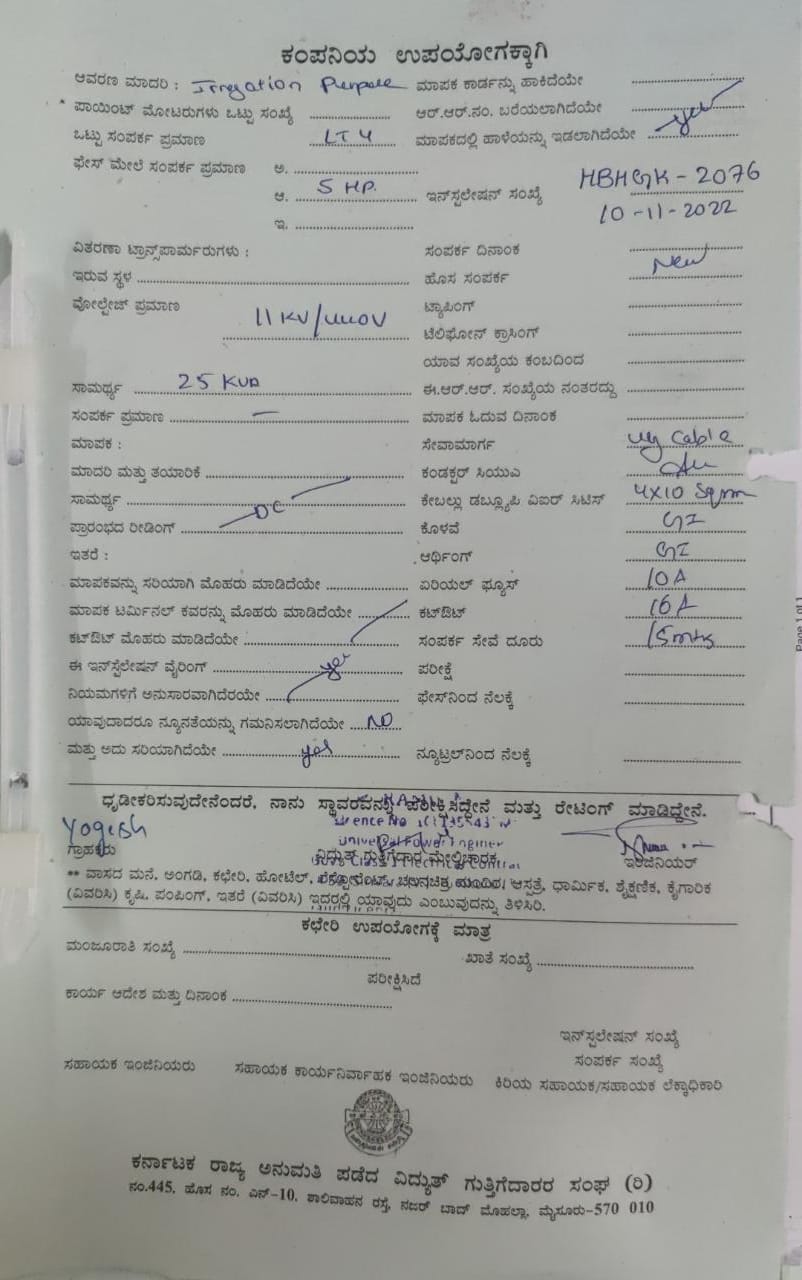 ಕಂಪನಿಯ ಉಪಯೋಗಕ್ಕಾಗಿ
ಆವರಣ ಮಾದರಿ : Irregation Purpose ಮಾಪಕ ಕಾರ್ಡನ್ನು ಹಾಕಿದೆಯೇ
* ಪಾಯಿಂಟ್ ಮೋಟರುಗಳು ಒಟ್ಟು ಸಂಖ್ಯೆ ಆರ್.ಆರ್.ನಂ. ಬರೆಯಲಾಗಿದೆಯೇ
ಒಟ್ಟು ಸಂಪರ್ಕ ಪ್ರಮಾಣ LT 4 ಮಾಪಕದಲ್ಲಿ ಹಾಳೆಯನ್ನು ಇಡಲಾಗಿದೆಯೇ yes
ಫೇಸ್ ಮೇಲೆ ಸಂಪರ್ಕ ಪ್ರಮಾಣ ಅ.
ಆ. 5 HP. ಇನ್‌ಸ್ಟಲೇಷನ್ ಸಂಖ್ಯೆ HBHGK - 2076
ಇ. 10-11-2022
ವಿತರಣಾ ಟ್ರಾನ್ಸ್‌ಪಾರ್ಮರುಗಳು : ಸಂಪರ್ಕ ದಿನಾಂಕ
ಇರುವ ಸ್ಥಳ ಹೊಸ ಸಂಪರ್ಕ New
ವೋಲ್ಟೇಜ್ ಪ್ರಮಾಣ 11 KV/440V ಟ್ಯಾಪಿಂಗ್
ಟೆಲಿಫೋನ್ ಕ್ರಾಸಿಂಗ್
ಯಾವ ಸಂಖ್ಯೆಯ ಕಂಬದಿಂದ
ಸಾಮರ್ಥ್ಯ 25 KVA ಈ.ಆರ್.ಆರ್. ಸಂಖ್ಯೆಯ ನಂತರದ್ದು
ಸಂಪರ್ಕ ಪ್ರಮಾಣ — ಮಾಪಕ ಓದುವ ದಿನಾಂಕ
ಮಾಪಕ : ಸೇವಾಮಾರ್ಗ ug Cable
ಮಾದರಿ ಮತ್ತು ತಯಾರಿಕೆ ಕಂಡಕ್ಟರ್ ಸಿಯುಎ
ಸಾಮರ್ಥ್ಯ DC ಕೇಬಲ್ಲು ಡಬ್ಲ್ಯೂಪಿ ವಿಐರ್ ಸಿಟಿಸ್ 4X10 Sqmm
ಪ್ರಾರಂಭದ ರೀಡಿಂಗ್ ಕೊಳವೆ GI
ಇತರೆ : ಆರ್ಥಿಂಗ್ GI
ಮಾಪಕವನ್ನು ಸರಿಯಾಗಿ ಮೊಹರು ಮಾಡಿದೆಯೇ ಏರಿಯಲ್ ಫ್ಯೂಸ್ 10A
ಮಾಪಕ ಟರ್ಮಿನಲ್ ಕವರನ್ನು ಮೊಹರು ಮಾಡಿದೆಯೇ ಕಟ್‌ಔಟ್ 16A
ಕಟ್‌ಔಟ್ ಮೊಹರು ಮಾಡಿದೆಯೇ ಸಂಪರ್ಕ ಸೇವೆ ದೂರು 15mtrs
ಈ ಇನ್‌ಸ್ಟಲೇಷನ್ ವೈರಿಂಗ್ yes ಪರೀಕ್ಷೆ
ನಿಯಮಗಳಿಗೆ ಅನುಸಾರವಾಗಿದೆರಯೇ ಫೇಸ್‌ನಿಂದ ನೆಲಕ್ಕೆ
ಯಾವುದಾದರೂ ನ್ಯೂನತೆಯನ್ನು ಗಮನಿಸಲಾಗಿದೆಯೇ NO
ಮತ್ತು ಅದು ಸರಿಯಾಗಿದೆಯೇ yes ನ್ಯೂಟ್ರಲ್‌ನಿಂದ ನೆಲಕ್ಕೆ
ಧೃಡೀಕರಿಸುವುದೇನೆಂದರೆ, ನಾನು ಸ್ಥಾವರವನ್ನು ಪರೀಕ್ಷಿಸಿದ್ದೇನೆ ಮತ್ತು ರೇಟಿಂಗ್ ಮಾಡಿದ್ದೇನೆ.
Yogesh
ಗ್ರಾಹಕರು ವಿದ್ಯುತ್ ಗುತ್ತಿಗೆದಾರ ಮೇಲ್ವಿಚಾರಕ ಇಂಜಿನಿಯರ್
** ವಾಸದ ಮನೆ, ಅಂಗಡಿ, ಕಛೇರಿ, ಹೋಟೆಲ್, ರೆಸ್ಟೋರೆಂಟ್, ಚಲನಚಿತ್ರ ಮಂದಿರ, ಆಸ್ಪತ್ರೆ, ಧಾರ್ಮಿಕ, ಶೈಕ್ಷಣಿಕ, ಕೈಗಾರಿಕ
(ವಿವರಿಸಿ) ಕೃಷಿ, ಪಂಪಿಂಗ್, ಇತರೆ (ವಿವರಿಸಿ) ಇದರಲ್ಲಿ ಯಾವುದು ಎಂಬುವುದನ್ನು ತಿಳಿಸಿರಿ.
ಕಛೇರಿ ಉಪಯೋಗಕ್ಕೆ ಮಾತ್ರ
ಮಂಜೂರಾತಿ ಸಂಖ್ಯೆ ಖಾತೆ ಸಂಖ್ಯೆ
ಪರೀಕ್ಷಿಸಿದೆ
ಕಾರ್ಯ ಆದೇಶ ಮತ್ತು ದಿನಾಂಕ
ಇನ್‌ಸ್ಟಲೇಷನ್ ಸಂಖ್ಯೆ
ಸಂಪರ್ಕ ಸಂಖ್ಯೆ
ಸಹಾಯಕ ಇಂಜಿನಿಯರು ಸಹಾಯಕ ಕಾರ್ಯನಿರ್ವಾಹಕ ಇಂಜಿನಿಯರು ಕಿರಿಯ ಸಹಾಯಕ/ಸಹಾಯಕ ಲೆಕ್ಕಾಧಿಕಾರಿ
ಕರ್ನಾಟಕ ರಾಜ್ಯ ಅನುಮತಿ ಪಡೆದ ವಿದ್ಯುತ್ ಗುತ್ತಿಗೆದಾರರ ಸಂಘ (ರಿ)
ನಂ.445, ಹೊಸ ನಂ. ಎನ್-10, ಶಾಲಿವಾಹನ ರಸ್ತೆ, ನಜರ್ ಬಾದ್ ಮೊಹಲ್ಲಾ, ಮೈಸೂರು-570 010
Page 1 of 1